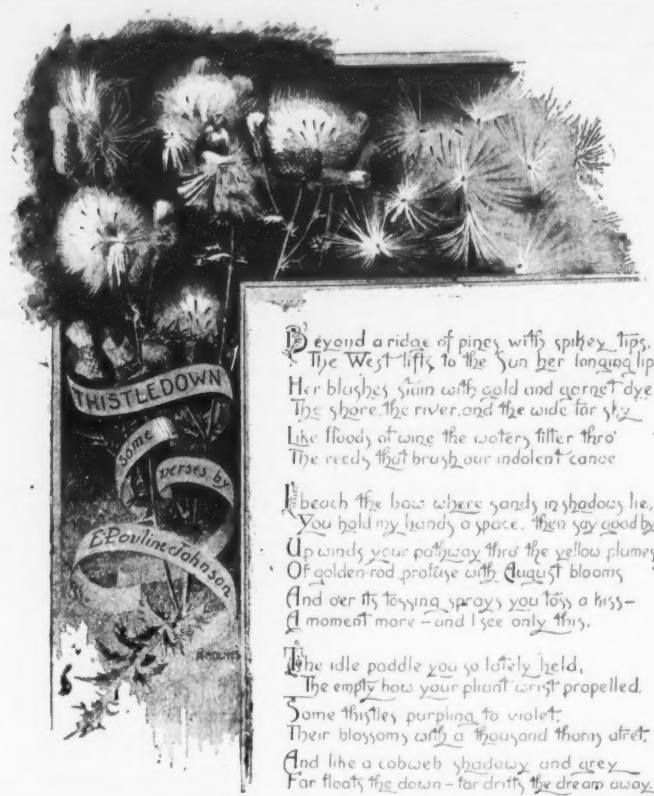 THISTLEDOWN
some
verses by
E. Pauline Johnson
Beyond a ridge of pines with spikey tips,
The West lifts to the Sun her longing lip
Her blushes stain with gold and garnet dye
The shore, the river, and the wide far sky
Like floods of wine the waters filter thro'
The reeds that brush our indolent canoe
I beach the bow where sands in shadows lie,
You hold my hands a space, then say good by
Up winds your pathway thro' the yellow plumes
Of golden-rod profuse with August blooms
And o'er its tossing sprays you toss a kiss –
A moment more – and I see only this,
The idle paddle you so lately held,
The empty bow your pliant wrist propelled,
Some thistles purpling to violet,
Their blossoms with a thousand thorns afret,
And like a cobweb shadowy and grey
Far floats the down – far drifts the dream away.